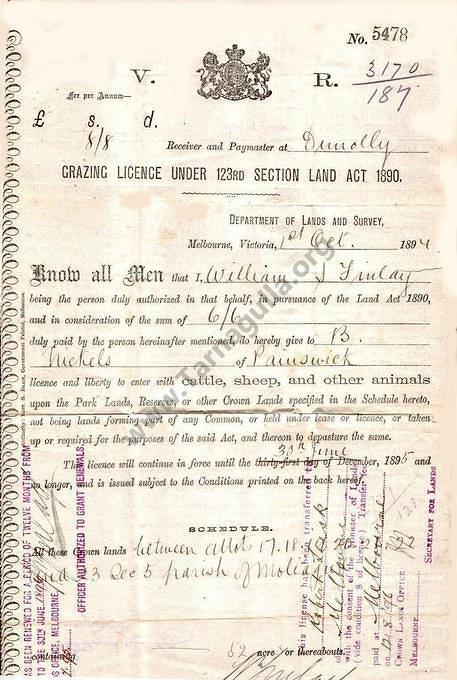 No. 5478
V. R.
3170
187
Fee per Annum—
£ s. d.
8/8
Receiver and Paymaster at Dunolly
GRAZING LICENCE UNDER 123RD SECTION LAND ACT 1890.
DEPARTMENT OF LANDS AND SURVEY,
Melbourne, Victoria, 1st Oct. 1894
Know all Men that I, William S Finlay
being the person duly authorized in that behalf, in pursuance of the Land Act 1890,
and in consideration of the sum of 6/6
duly paid by the person hereinafter mentioned, do hereby give to B.
Nickels of Painswick
licence and liberty to enter with cattle, sheep, and other animals
upon the Park Lands, Reserves, or other Crown Lands specified in the Schedule hereto,
not being lands forming part of any Common, or held under lease or licence, or taken
up or required for the purposes of the said Act, and thereon to depasture the same.
30th June
The licence will continue in force until the thirty-first day of December, 1895 and
no longer, and is issued subject to the Conditions printed on the back hereof.
SCHEDULE.
All those Crown lands between allots 17. 18
and 3 Sec 5 parish of
containing 52 acre or thereabouts.
HAS BEEN RENEWED FOR A PERIOD OF TWELVE MONTHS FROM
TO THE 30TH JUNE 1896
LANDS OFFICE, MELBOURNE,
OFFICER AUTHORIZED TO GRANT RENEWALS
This license has been transferred to
Robert
with the consent of the Minister of Lands
(vide condition 8 of license) Transfer fee
paid at Melbourne
on 12.8.96
CROWN LANDS OFFICE
MELBOURNE.
SECRETARY FOR LANDS
123
www.Tarnagulla.org